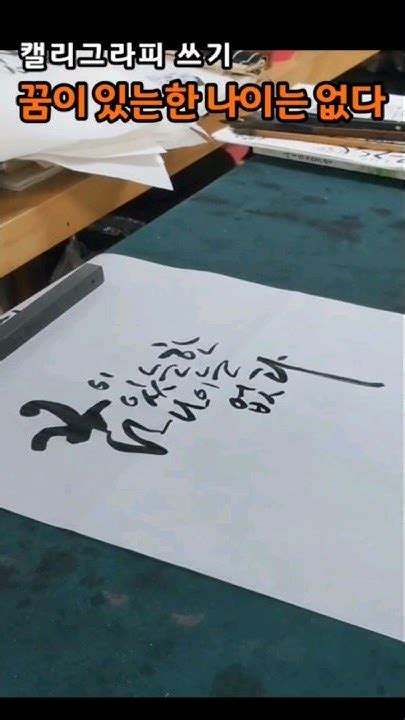 캘리그라피 쓰기
꿈이 있는한 나이는 없다
꿈이
있는한
나이는
없다